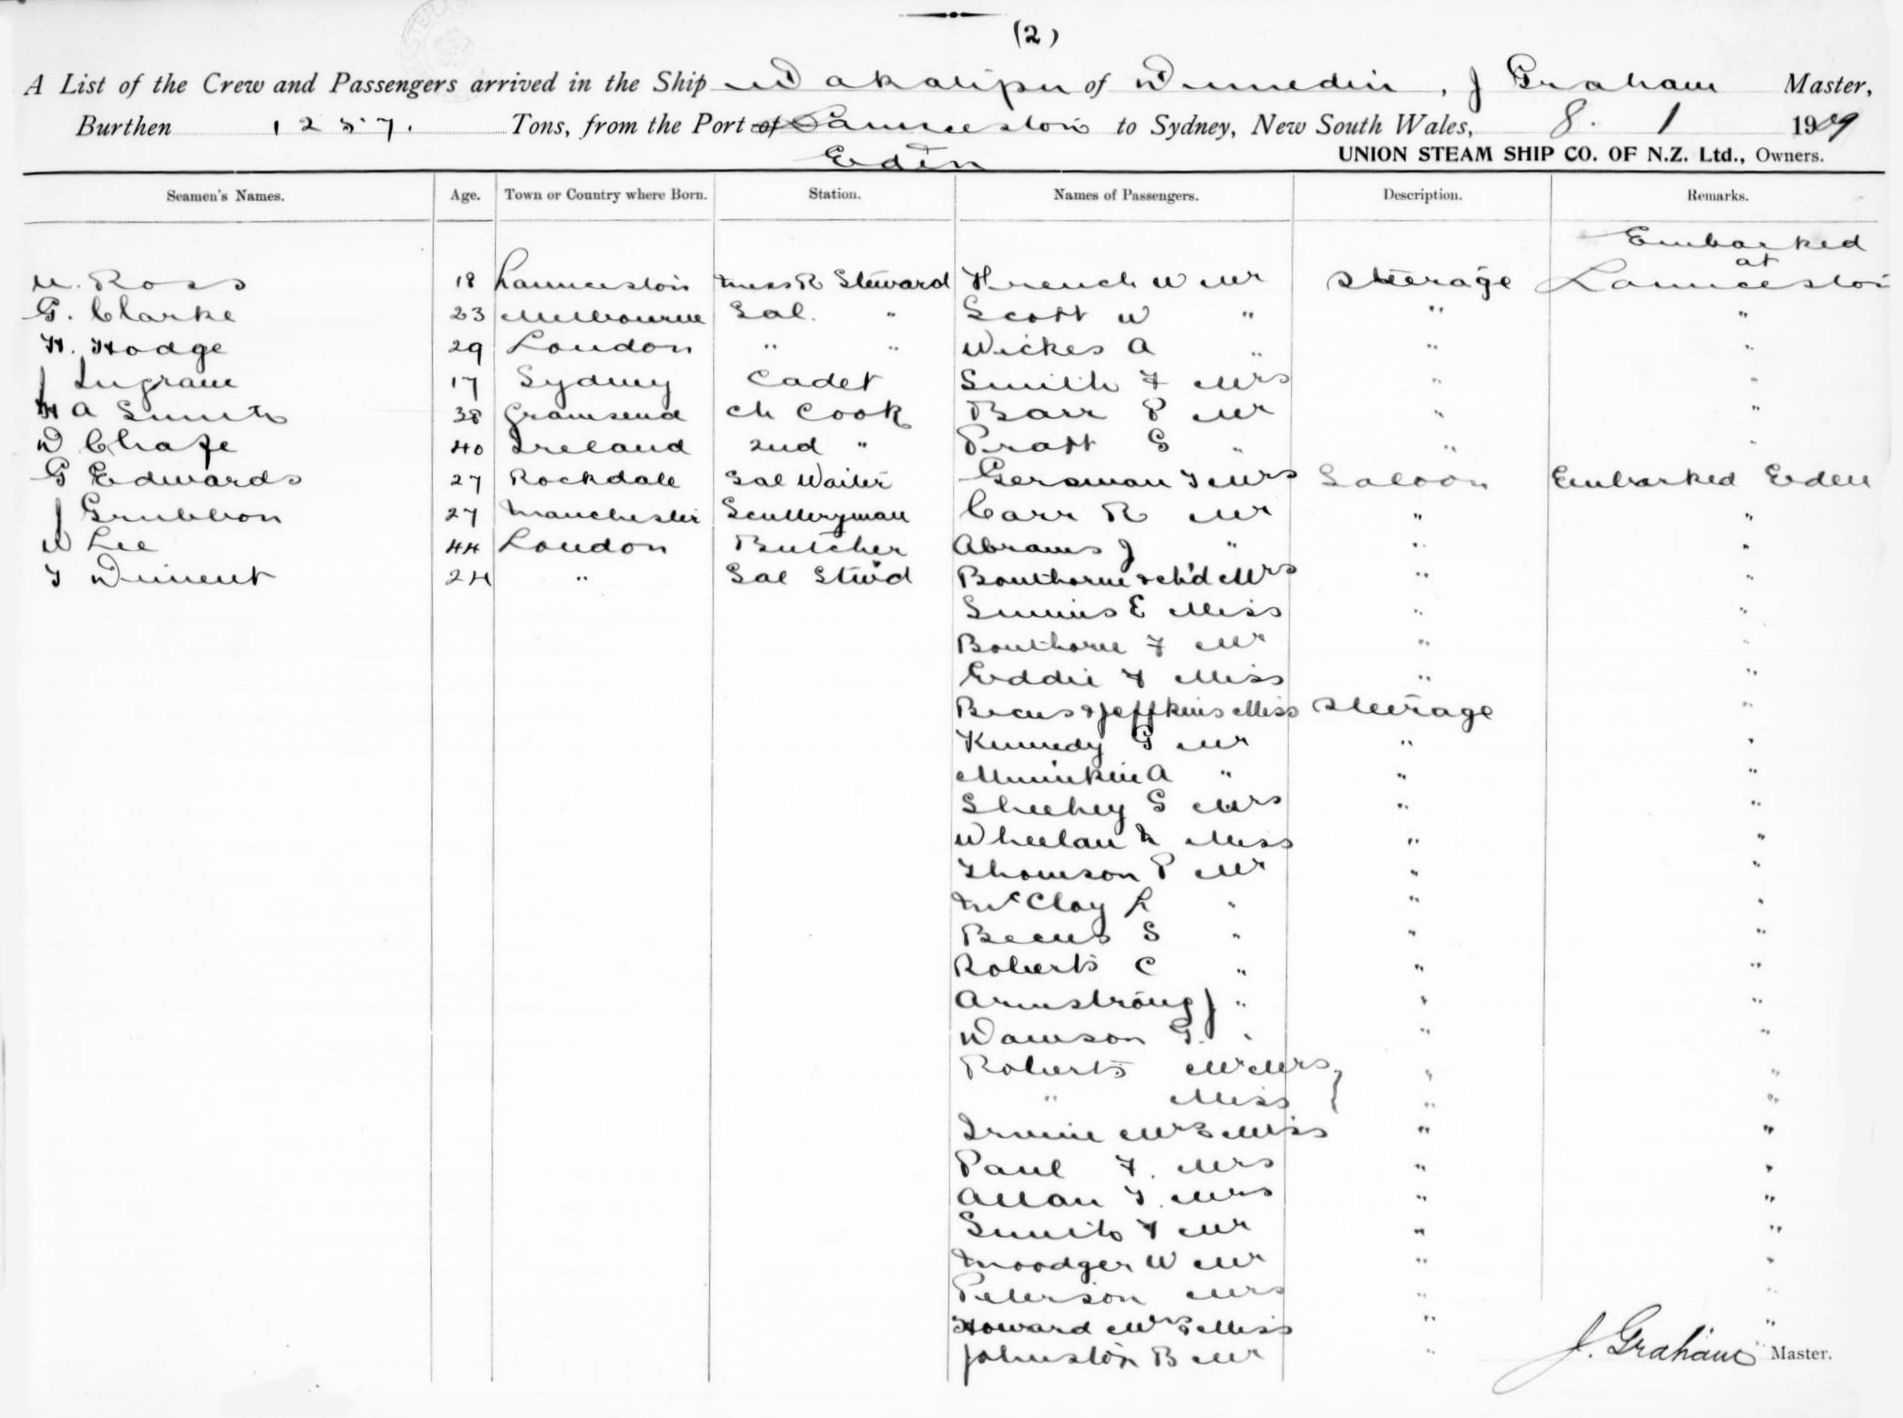 (2)
A List of the Crew and Passengers arrived in the Ship Wakatipu of Dunedin, J Graham Master,
Burthen 1257. Tons, from the Port of Launceston to Sydney, New South Wales, 8. 1 1909
Eden
UNION STEAM SHIP CO. OF N.Z. Ltd., Owners.
Seamen's Names. Age. Town or Country where Born. Station. Names of Passengers. Description. Remarks.
Embarked
at
Ross 18 Launceston Mess R Steward French W Mr Steerage Launceston
G. Clarke 23 Melbourne Sal. " Scott W " " "
H. Hodge 29 London " " Wickes A " " "
J Ingram 17 Sydney Cadet Smith F Mrs " "
H A Smith 38 Gravesend Ch Cook Barr P Mr " "
D 40 Ireland 2nd " Pratt G " " "
G Edwards 27 Rockdale Sal Waiter F Mrs Saloon Embarked Eden
J Gribbon 27 Manchester Sculleryman Carr R Mr " "
W Lee 44 London Butcher Abrams J " " "
T Diment 24 " Sal Stew'd Bouthorne & ch'd Mrs " "
E Miss " "
Bouthorne F Mr " "
Eddie F Miss " "
& Jeffkins Miss Steerage "
Kennedy G Mr " "
A " " "
Sheehey G Mrs " "
Wheelan Miss " "
Thomson P Mr " "
McCloy L " " "
S " " "
Roberts C " " "
Armstrong J " " "
Dawson G. " " "
Roberts Mr Mrs } " "
" Miss } " "
Irvine Mrs & Miss " "
Paul F. Mrs " "
Allan T. Mrs " "
Smith F Mr " "
Moodger W Mr " "
Peterson Mrs " "
Howard Mrs & Miss " "
Johnston B Mr " "
J. Graham Master.